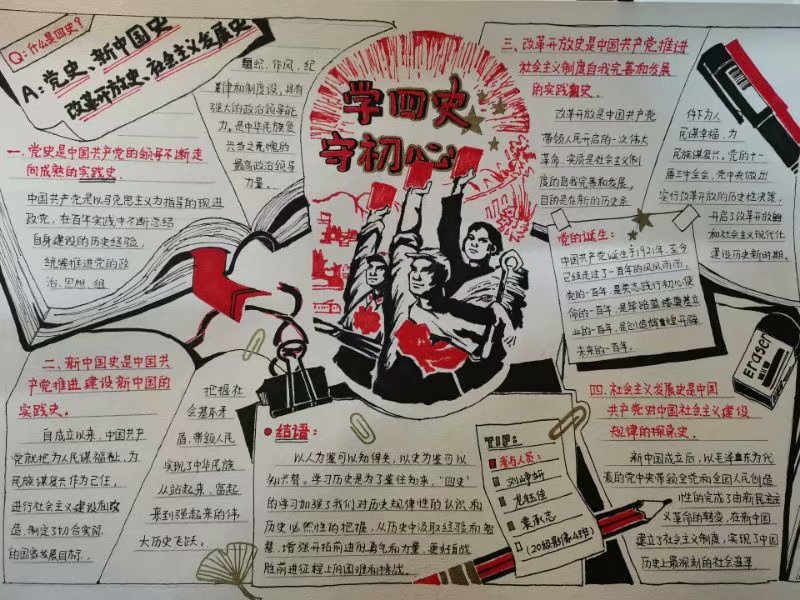 Q:什么是四史?
A:党史、新中国史
改革开放史、社会主义发展史
一、党史是中国共产党的领导不断走
向成熟的实践史
中国共产党是以马克思主义为指导的现进
政党,在百年实践中不断总结
自身建设的历史经验,
统筹推进党的政
治、思想、组
织、作风、纪
律和制度设,具有
强大的政治领导能
力,是中华民族复
兴当之无愧的
最高政治领导
力量。
学四史
守初心
二、新中国史是中国共
产党推进建设新中国的
实践史。
自成立以来,中国共产
党就把为人民谋福祉,为
民族谋复兴作为己任,
进行社会主义建设和改
造,制定了切合实际
的国家发展目标,
把握社
会基本矛
盾,带领人民
实现了中华民族
从站起来、富起
来到强起来的伟
大历史飞跃。
三、改革开放史是中国共产党推进
社会主义制度自我完善和发展
的实践史
改革开放是中国共产党
带领人民开启的一次伟大
革命,实质是社会主义制
度的自我完善和发展,
目的是在新的历史条
件下为人
民谋幸福,为
民族谋复兴。党的十一
届三中全会,党中央做出
实行改革开放的历史性决策,
开启了改革开放
和社会主义现代化
建设历史新时期。
党的诞生:
中国共产党诞生于1921年,至今
已经走过了一百年的风风雨雨,
党的一百年,是矢志践行初心使
命的一百年,是筚路蓝缕奠基立
业的一百年,是创造辉煌开辟
未来的一百年。
Eraser
四、社会主义发展史是中国
共产党对中国社会主义建设
规律的探索史。
新中国成立后,以毛泽东为代
表的党中央带领全党和全国人民创造
性的完成了由新民主主
义革命的转变,在新中国
建立了社会主义制度,实现了中国
历史上最深刻的社会变革
结语:
以人为鉴可以知得失,以史为鉴可以
知兴替。学习历史是为了鉴往知来,“四史”
的学习加强了我们对历史规律性的认识和
历史必然性的把握,从历史中汲取经验和智
慧,增强开拓前进的勇气和力量,更好自战
胜前进征程上的困难和挑战。
TIP:
参与人员:
龙钰佳
袁承志
(20级影像4班)